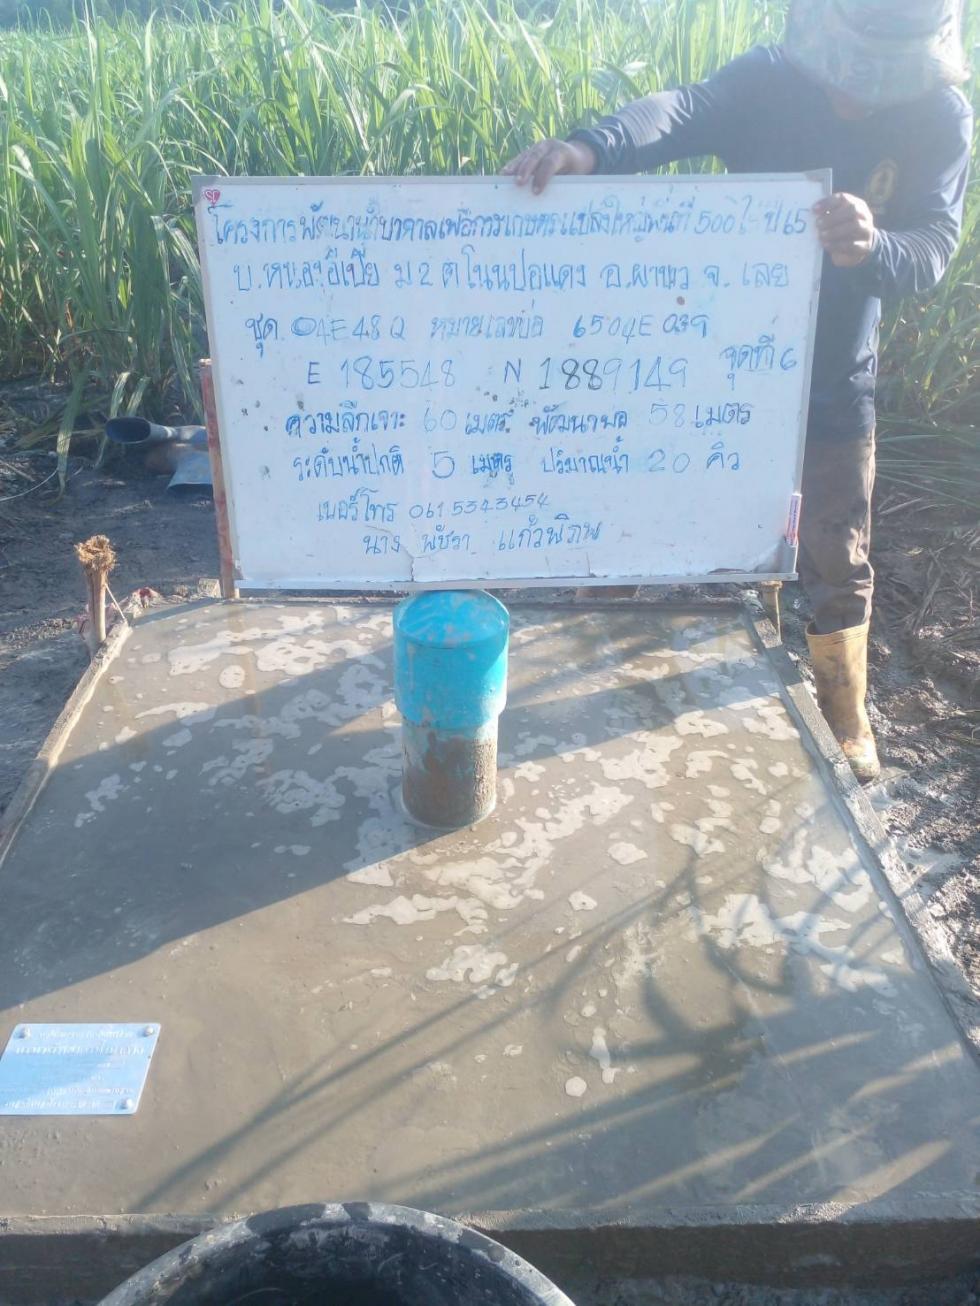 โครงการพัฒนาน้ำบาดาลเพื่อการเกษตรแปลงใหญ่พื้นที่ 500 ไร่ ปี 65
บ.หนองอีเปี้ย ม 2 ต โนนปอแดง อ.ผาขาว จ. เลย
ชุด. 04E48Q หมายเลขบ่อ 6504E 039
E 185548 N 1889149 จุดที่ 6
ความลึกเจาะ 60 เมตร พัฒนาบ่อ 58 เมตร
ระดับน้ำปกติ 5 เมตร ปริมาณน้ำ 20 คิว
เบอร์โทร 061 5343454
นาง พัชรา แก้วพิภพ